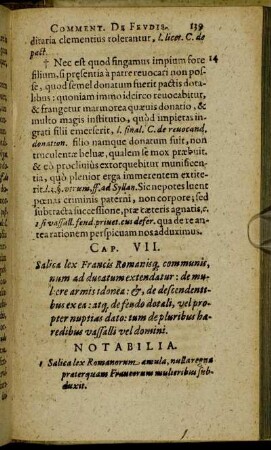 COMMENT. DE FEVDIS. 139
ditaria clementius tolerantur, l. licet. C. de
pact.
† Nec est quod fingamus impium fore 14
filium, si presentia à patre reuocari non pos-
se, quod semel donatum fuerit pactis dota-
libus: quoniam immo idcirco reuocabitur,
& frangetur mar morea quæuis donatio, &
multo magis institutio, quòd impietas in-
grati filii emerserit, l. final. C. de reuocand.
donation. filio namque donatum fuit, non
truculentæ beluæ, qualem se mox præbuit,
& eo procliuius extorquebitur munificen-
tia, quò plenior erga immerentem extite-
rit. l. 1. §. utrum. ff. ad Syllan. Sic nepotes luent
pœnas criminis paterni, non corpore; sed
subtracta successione, præ cæteris agnatis, c.
1 si vassall. feud. priuet. cui defer. qua de re an-
tea rationem perspicuam nos adduximus.
CAP. VII.
Salica lex Francis Romanisq; communis,
num ad ducatum extendatur: de mu-
liere armis idonea: &, de descendenti-
bus ex ea: atq; de feudo dotali, vel pro-
pter nuptias dato: tum de pluribus hæ-
redibus vassalli vel domini.
NOTABILIA.
1 Salica lex Romanorum æmula, nulla regna
præterquam Francorum mulieribus sub-
duxit.